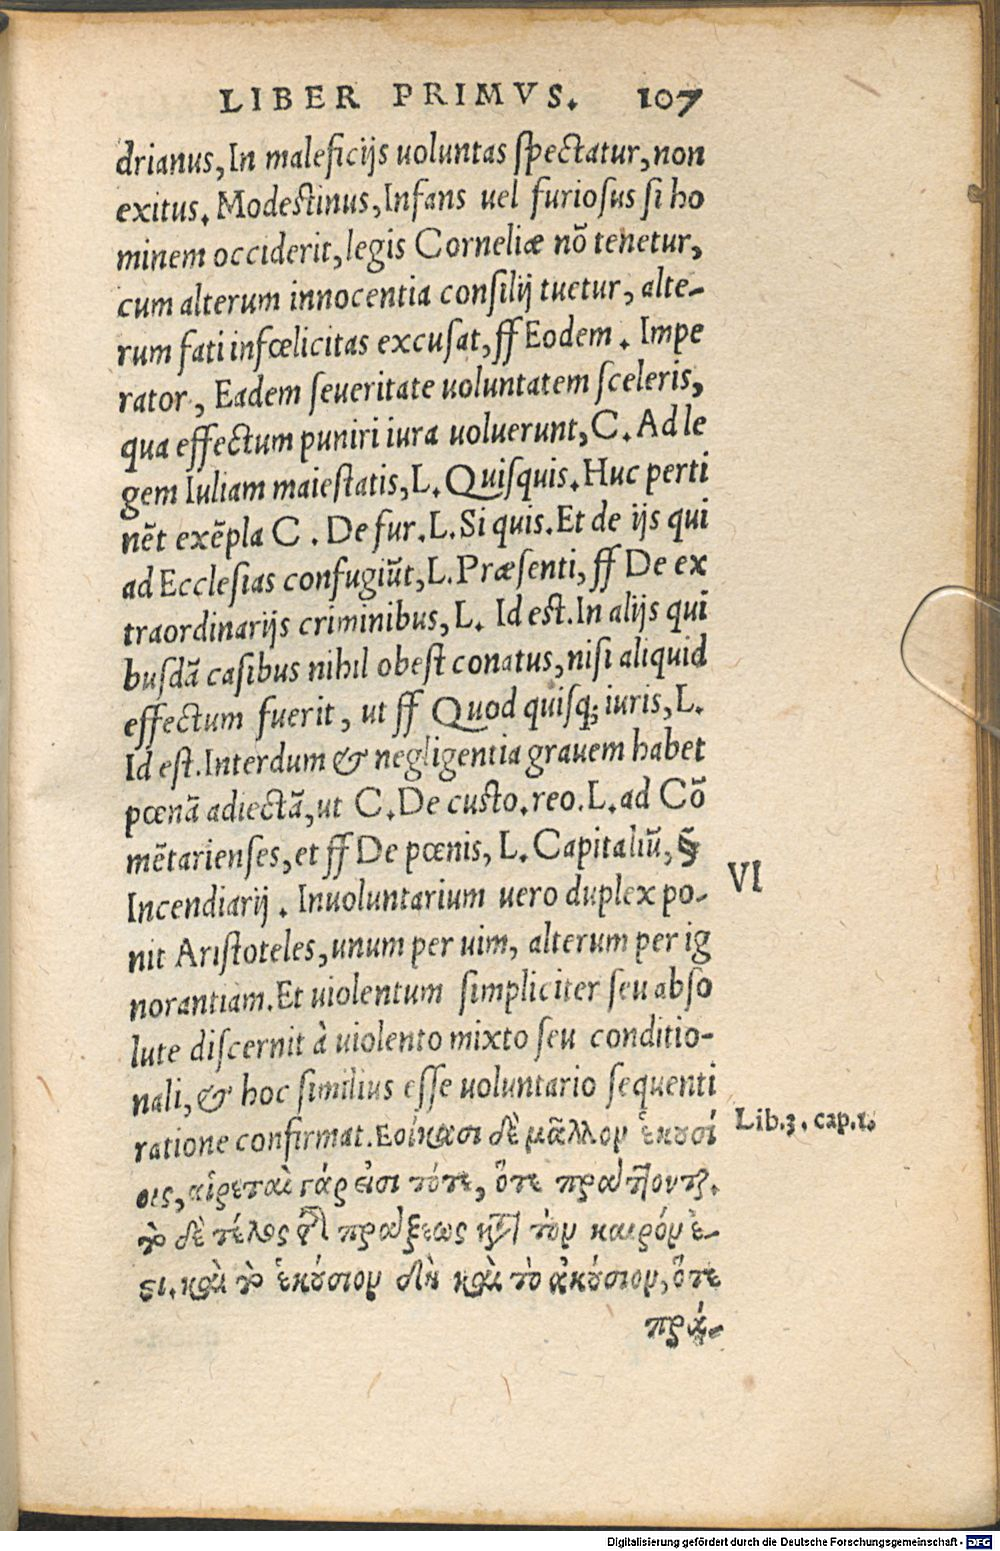 LIBER PRIMVS. 107
drianus, In maleficijs uoluntas spectatur, non
exitus. Modestinus, Infans uel furiosus si ho
minem occiderit, legis Corneliæ nõ tenetur,
cum alterum innocentia consilij tuetur, alte-
rum fati infœlicitas excusat, ff Eodem. Impe
rator, Eadem seueritate uoluntatem sceleris,
qua effectum puniri iura uoluerunt, C. Ad le
gem Iuliam maiestatis, L. Quisquis. Huc perti
nẽt exẽpla C. De fur. L. Si quis. Et de ijs qui
ad Ecclesias confugiũt, L. Præsenti, ff De ex
traordinarijs criminibus, L. Id est. In alijs qui
busdã casibus nihil obest conatus, nisi aliquid
effectum fuerit, ut ff Quod quisq; iuris, L.
Id est. Interdum & negligentia grauem habet
pœnã adiectã, ut C. De custo. reo. L. ad Cõ
mẽtarienses, et ff De pœnis, L. Capitaliũ, §
Incendiarij. Inuoluntarium uero duplex po-
VI
nit Aristoteles, unum per uim, alterum per ig
norantiam. Et uiolentum simpliciter seu abso
lute discernit à uiolento mixto seu conditio-
nali, & hoc similius esse uoluntario sequenti
ratione confirmat. Εοίκασι δὲ μᾶλλον ἑκουσί
Lib.3. cap.1.
οις, αἱρεταὶ γάρ εἰσι τότε, ὅτε πράττονται.
τὸ δὲ τέλος τῆς πράξεως κατὰ τὸν καιρόν ἐ-
ςι. καὶ τὸ ἑκούσιον δὴ καὶ τὸ ἀκούσιον, ὅτε
πρά-
Digitalisierung gefördert durch die Deutsche Forschungsgemeinschaft - DFG